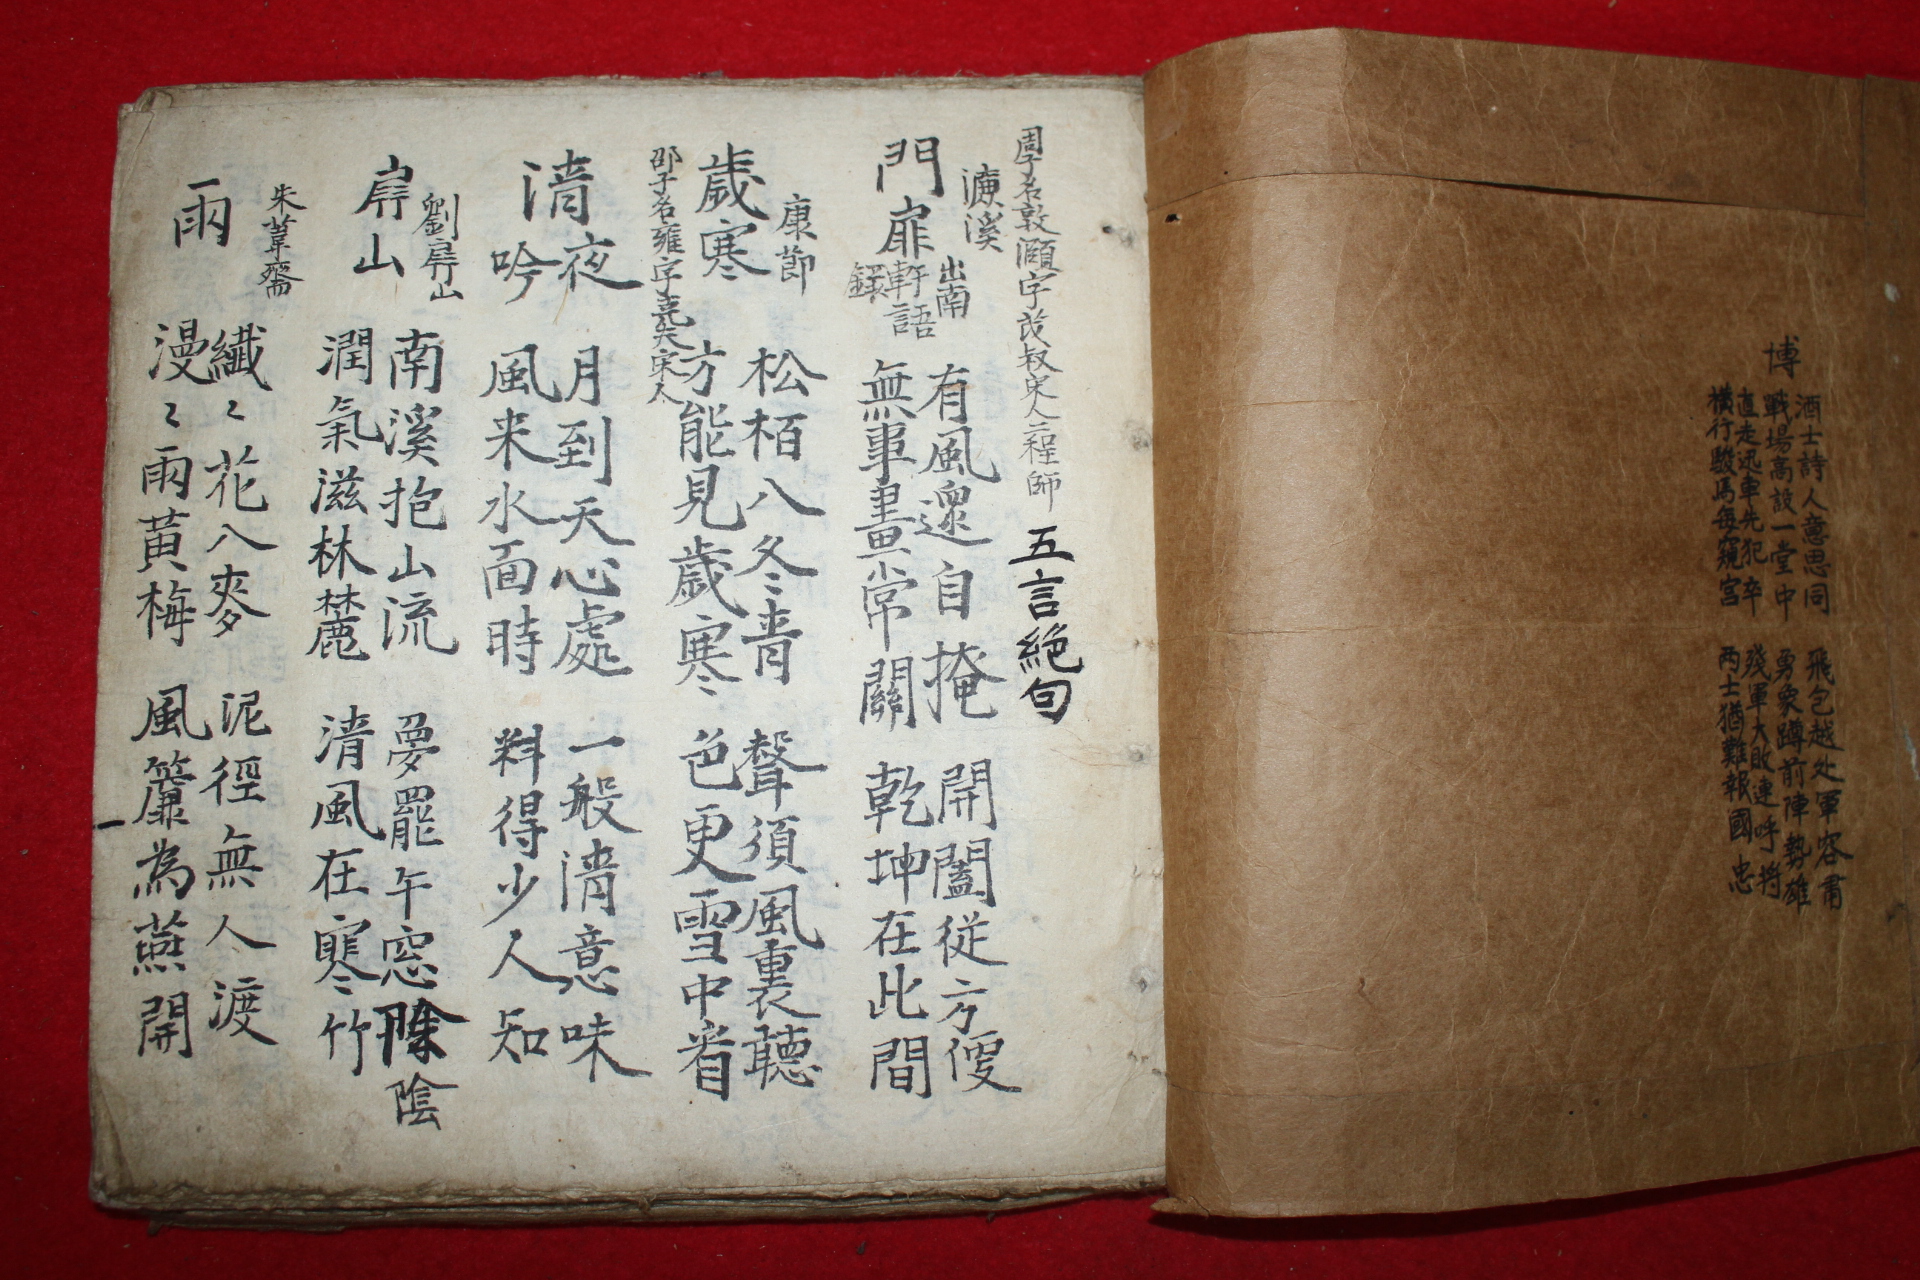 博
酒士詩人意思同　飛包越处軍容肅
戰場高設一堂中　勇象蹲前陣勢雄
直走迅車先犯卒　殘軍大敗連呼將
橫行駿馬每窺宮　兩士猶難報國忠
五言絕句
周子名敦頤字茂叔宋人二程師
濂溪
門扉
出南軒語錄
有風還自掩　開闔從方便
無事晝常關　乾坤在此間
康節
歲寒
邵子名雍字堯夫宋人
松栢入冬青　聲須風裏聽
方能見歲寒　色更雪中看
清夜吟
月到天心處　一般清意味
風来水面時　料得少人知
劉屛山
屛山
南溪抱山流　夢罷午窓陰
潤氣滋林麓　清風在寒竹
朱韋齋
雨
纖〻花入麥　泥徑無人渡
漫〻雨黃梅　風簾為燕開